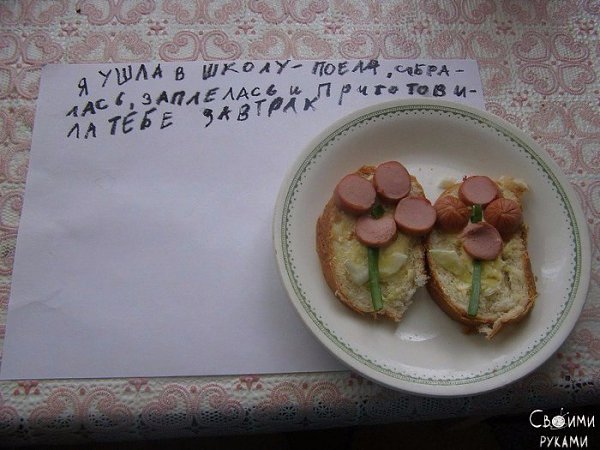 Я УШЛА В ШКОЛУ - ПОЕЛА, СОБРА-
ЛАСЬ, ЗАПЛЕЛАСЬ И ПРИГОТОВИ-
ЛА ТЕБЕ ЗАВТРАК
Своими
руками